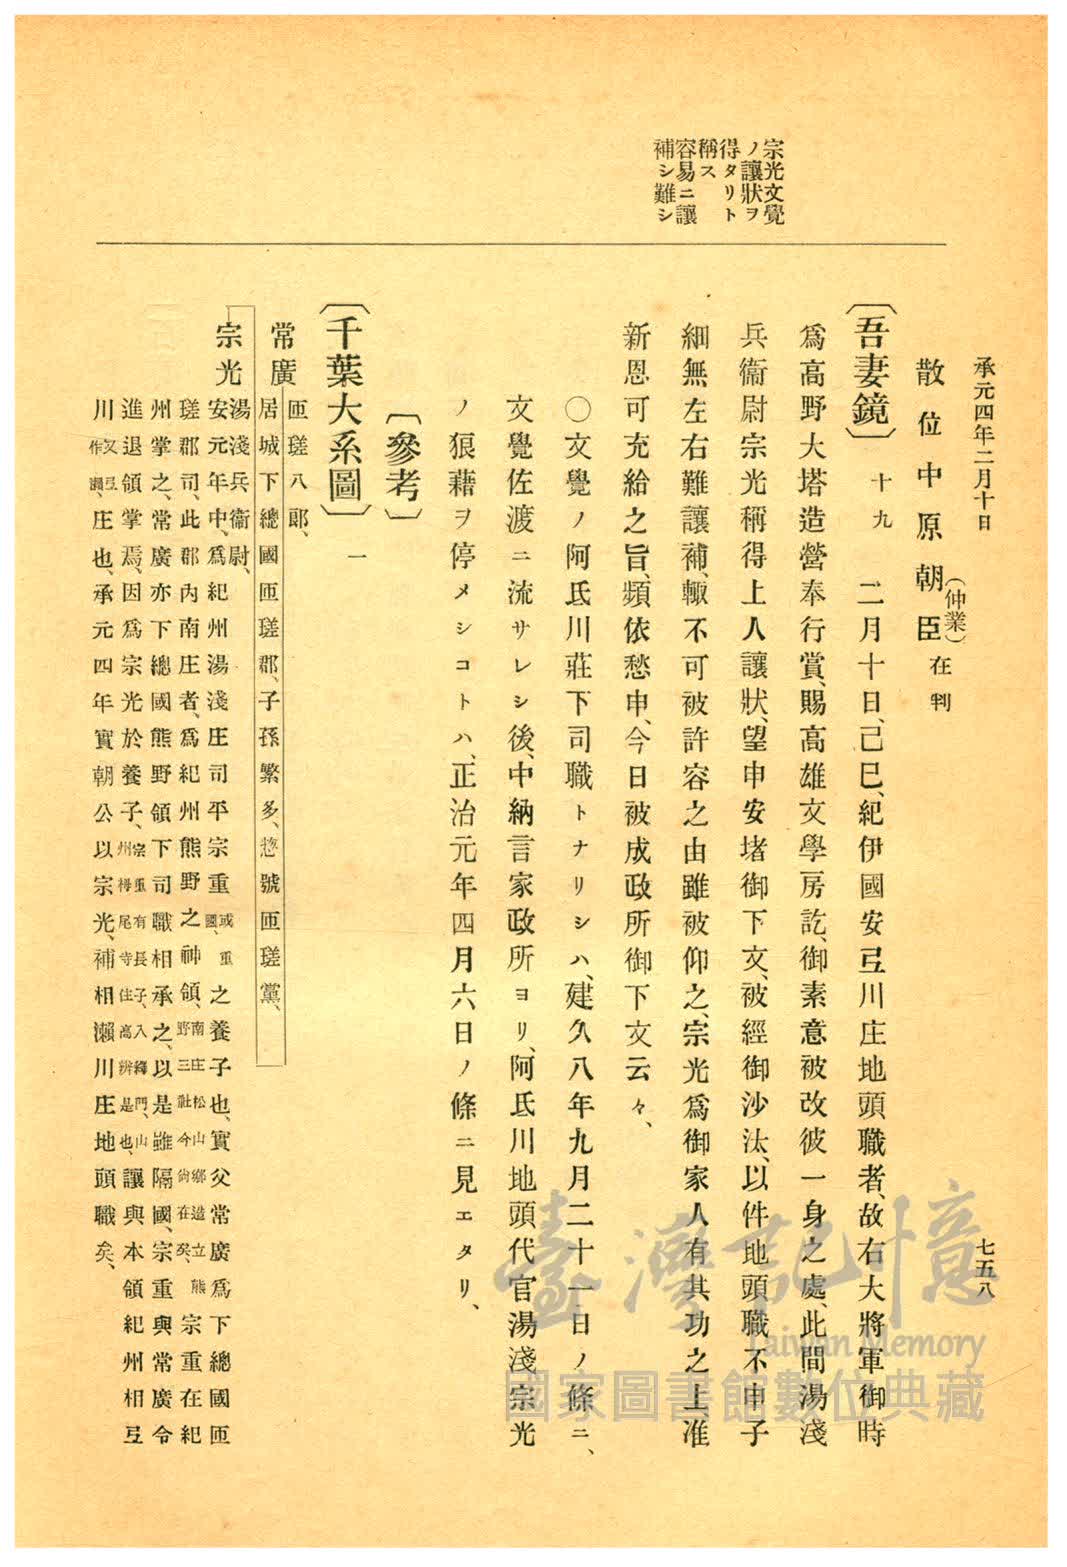 承元四年二月十日
七五八
宗光文覺
ノ讓狀ヲ
得タリト
稱ス
容易ニ讓
補シ難シ
散位中原朝臣(仲業)在判
〔吾妻鏡〕十九 二月十日、己巳、紀伊國安弖川庄地頭職者、故右大將軍御時
爲高野大塔造營奉行賞、賜高雄文學房訖、御素意被改彼一身之處、此間湯淺
兵衞尉宗光稱得上人讓狀、望申安堵御下文、被經御沙汰、以件地頭職不申子
細無左右難讓補、輙不可被許容之由雖被仰之、宗光爲御家人有其功之上、准
新恩可充給之旨、頻依愁申、今日被成政所御下文云々、
○文覺ノ阿氐川莊下司職トナリシハ、建久八年九月二十一日ノ條ニ、
文覺佐渡ニ流サレシ後、中納言家政所ヨリ、阿氐川地頭代官湯淺宗光
ノ狼藉ヲ停メシコトハ、正治元年四月六日ノ條ニ見エタリ、
〔參考〕
〔千葉大系圖〕一
常廣
匝瑳八郞、
居城下總國匝瑳郡、子孫繁多、惣號匝瑳黨、
宗光
湯淺兵衞尉、
安元年中、爲紀州湯淺庄司平宗重或重國、之養子也、實父常廣爲下總國匝
瑳郡司、此郡內南庄者、爲紀州熊野之神領、南庄松山鄕造立熊野三社、今尙在矣、宗重在紀
州掌之、常廣亦下總國熊野領下司職相承之、以是雖隔國、宗重與常廣令
進退領掌焉、因爲宗光於養子、宗重有長子、入釋門、山州栂尾寺住高辨是也、讓與本領紀州相弖
川又弖作瀨、庄也、承元四年實朝公以宗光、補相瀨川庄地頭職矣、
臺灣記憶
Taiwan Memory
國家圖書館數位典藏